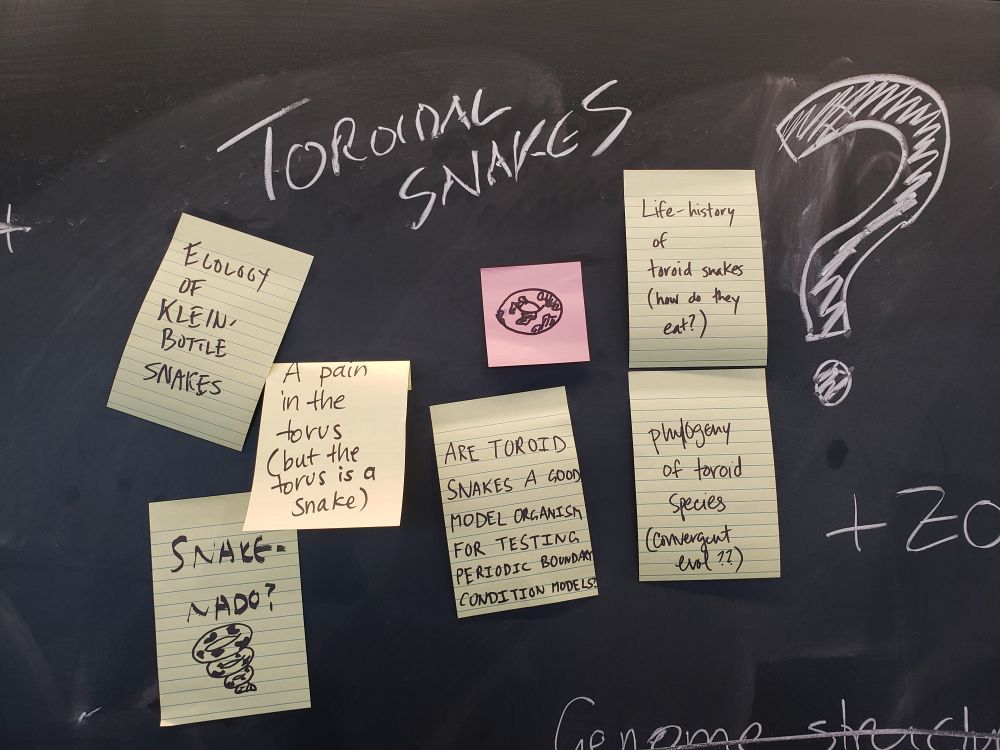 TOROIDAL
SNAKES
?
ECOLOGY
OF
KLEIN-
BOTTLE
SNAKES
A pain
in the
torus
(but the
torus is a
snake)
SNAKE-
NADO?
ARE TOROID
SNAKES A GOOD
MODEL ORGANISM
FOR TESTING
PERIODIC BOUNDARY
CONDITION MODELS?
Life-history
of
toroid snakes
(how do they
eat?)
phylogeny
of toroid
species
(convergent
evol ??)
+
+ ZO
Genome struct